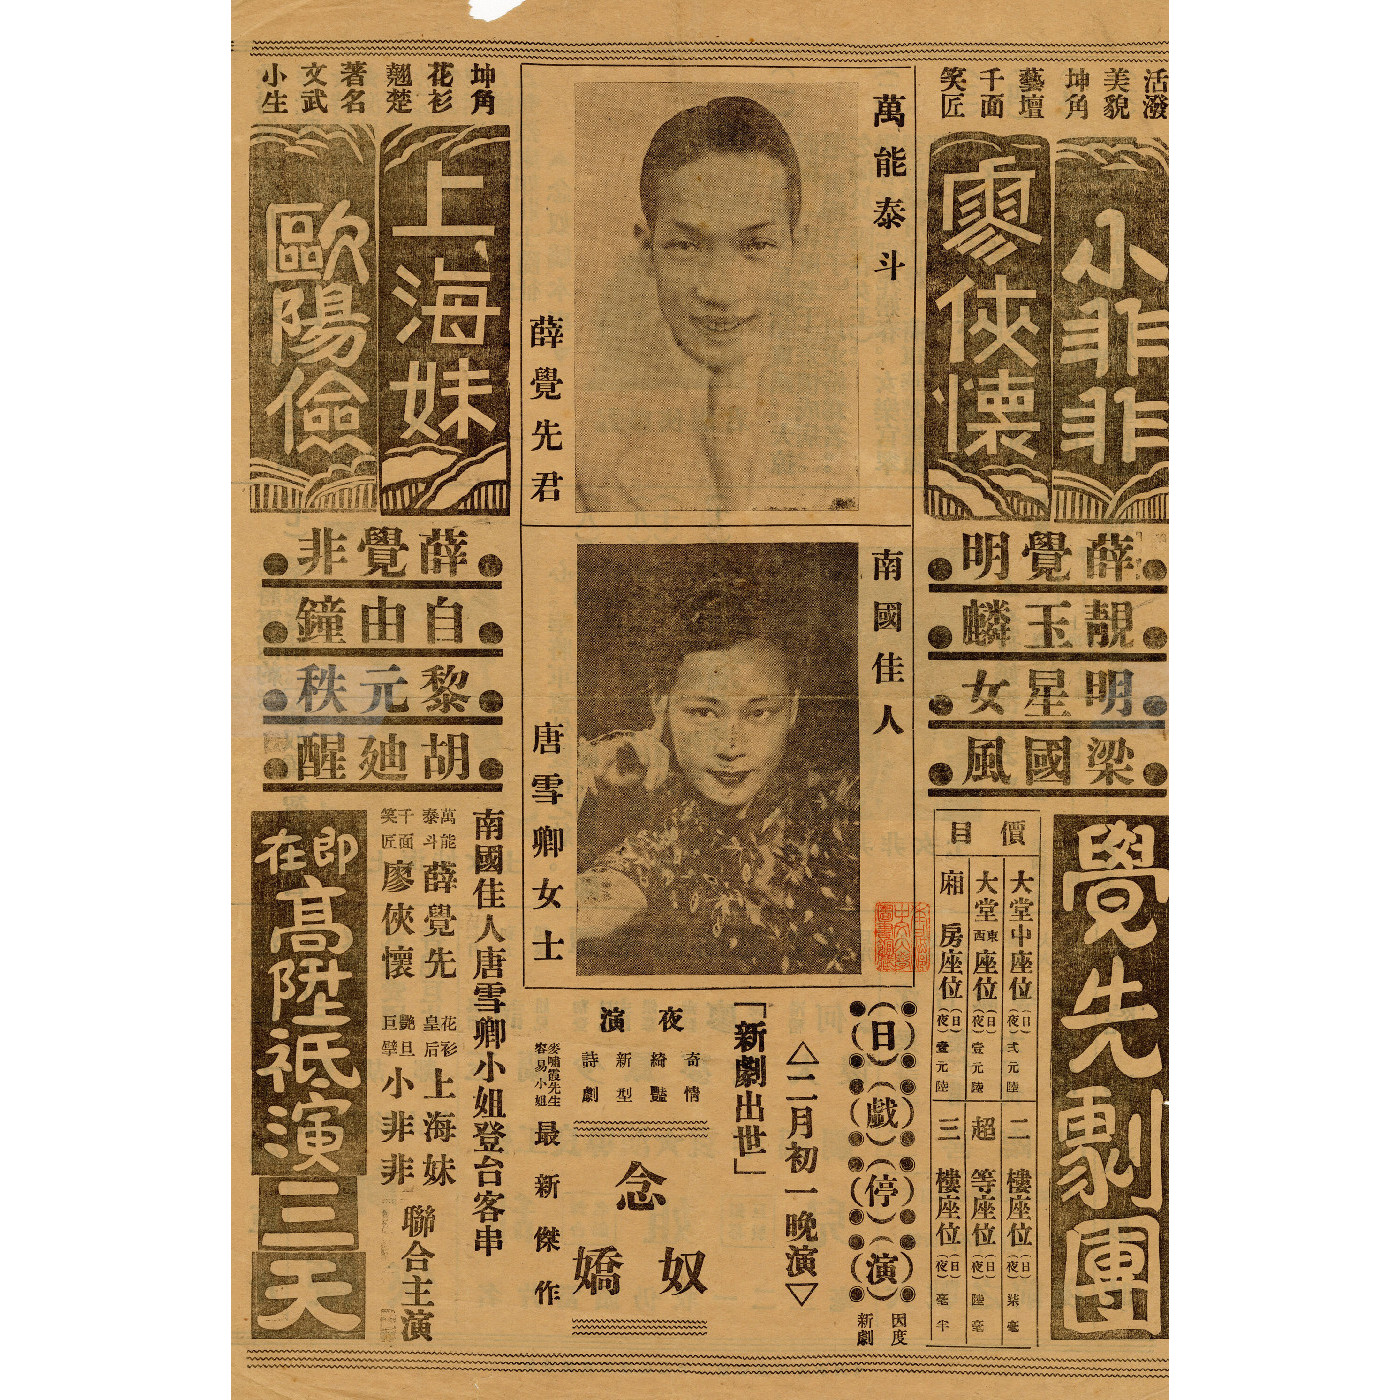 活潑
美貌
坤角
小非非
藝壇
千面
笑匠
廖俠懷
萬能泰斗
薛覺先君
坤角
花衫
翹楚
上海妹
著名
文武
小生
歐陽儉
薛覺明
靚玉麟
明星女
梁國風
南國佳人
唐雪卿女士
薛覺非
自由鐘
黎元秩
胡廸醒
覺先劇團
價目
大堂中座位(日)(夜)弍元陸
大堂東西座位(日)(夜)壹元陸
廂房座位(日)(夜)壹元陸
二樓座位(日)(夜)柒毫
超等座位(日)(夜)陸毫
三樓座位(日)(夜)毫半
(日)(戲)(停)(演)
因度
新劇
△二月初一晚演▽
「新劇出世」
夜演
奇情
綺豔
新型
詩劇
念奴嬌
麥嘯霞先生
容易小姐
最新傑作
南國佳人唐雪卿小姐登台客串
萬能泰斗薛覺先
花衫皇后上海妹
千面笑匠廖俠懷
艷旦巨擘小非非
聯合主演
即在高陞祗演三天